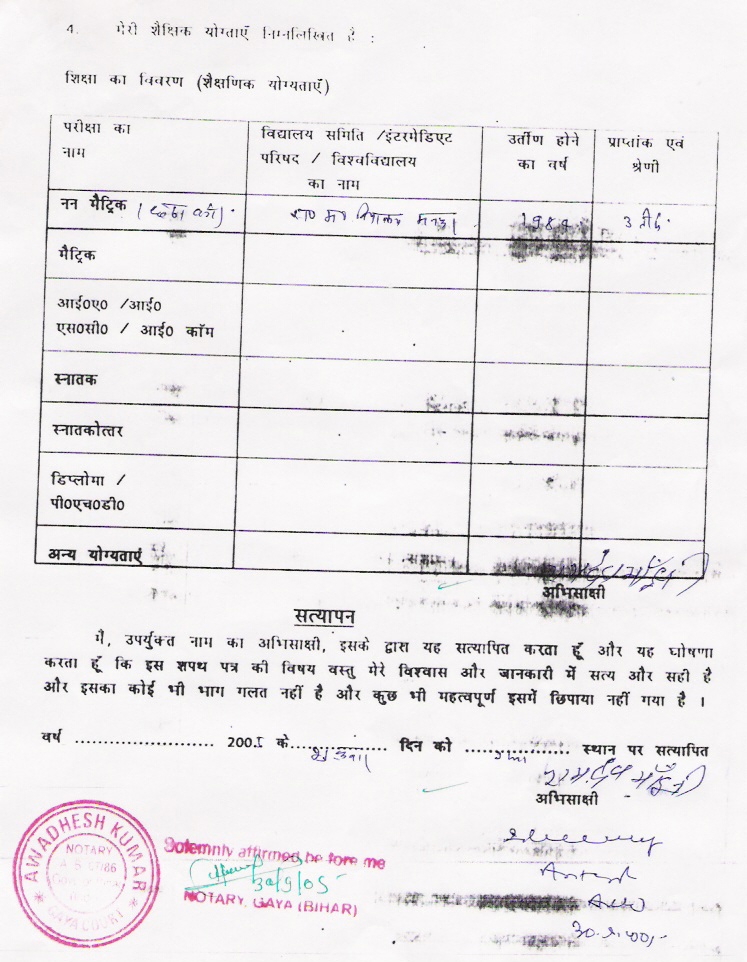 4. मेरी शैक्षिक योग्ताएँ निम्नलिखित है :
शिक्षा का विवरण (शैक्षणिक योग्यताएँ)
परीक्षा का नाम
विद्यालय समिति /इंटरमेडिएट परिषद / विश्वविद्यालय का नाम
उर्तीण होने का वर्ष
प्राप्तांक एवं श्रेणी
नन मैट्रिक
मैट्रिक
आई०ए० /आई०
एस०सी० / आई० कॉम
स्नातक
स्नातकोत्तर
डिप्लोमा /
पी०एच०डी०
अन्य योग्यताएं
अभिसाक्षी
सत्यापन
मैं, उपर्युक्त नाम का अभिसाक्षी, इसके द्वारा यह सत्यापित करता हूँ और यह घोषणा
करता हूँ कि इस शपथ पत्र की विषय वस्तु मेरे विश्वास और जानकारी में सत्य और सही है
और इसका कोई भी भाग गलत नहीं है और कुछ भी महत्वपूर्ण इसमें छिपाया नहीं गया है ।
वर्ष ........................ 200 के.................. दिन को .................. स्थान पर सत्यापित
अभिसाक्षी
AWADHESH KUMAR
NOTARY
GAYA COURT
Solemnly affirmed be fore me
30/9/05
NOTARY, GAYA (BIHAR)